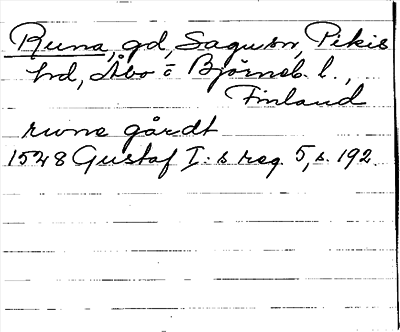 Runa, gd, Sagu sn, Pikis
hd, Åbo o Björneb. l.,
Finland
rwne gårdt
1528 Gustaf I:s reg. 5, s. 192.